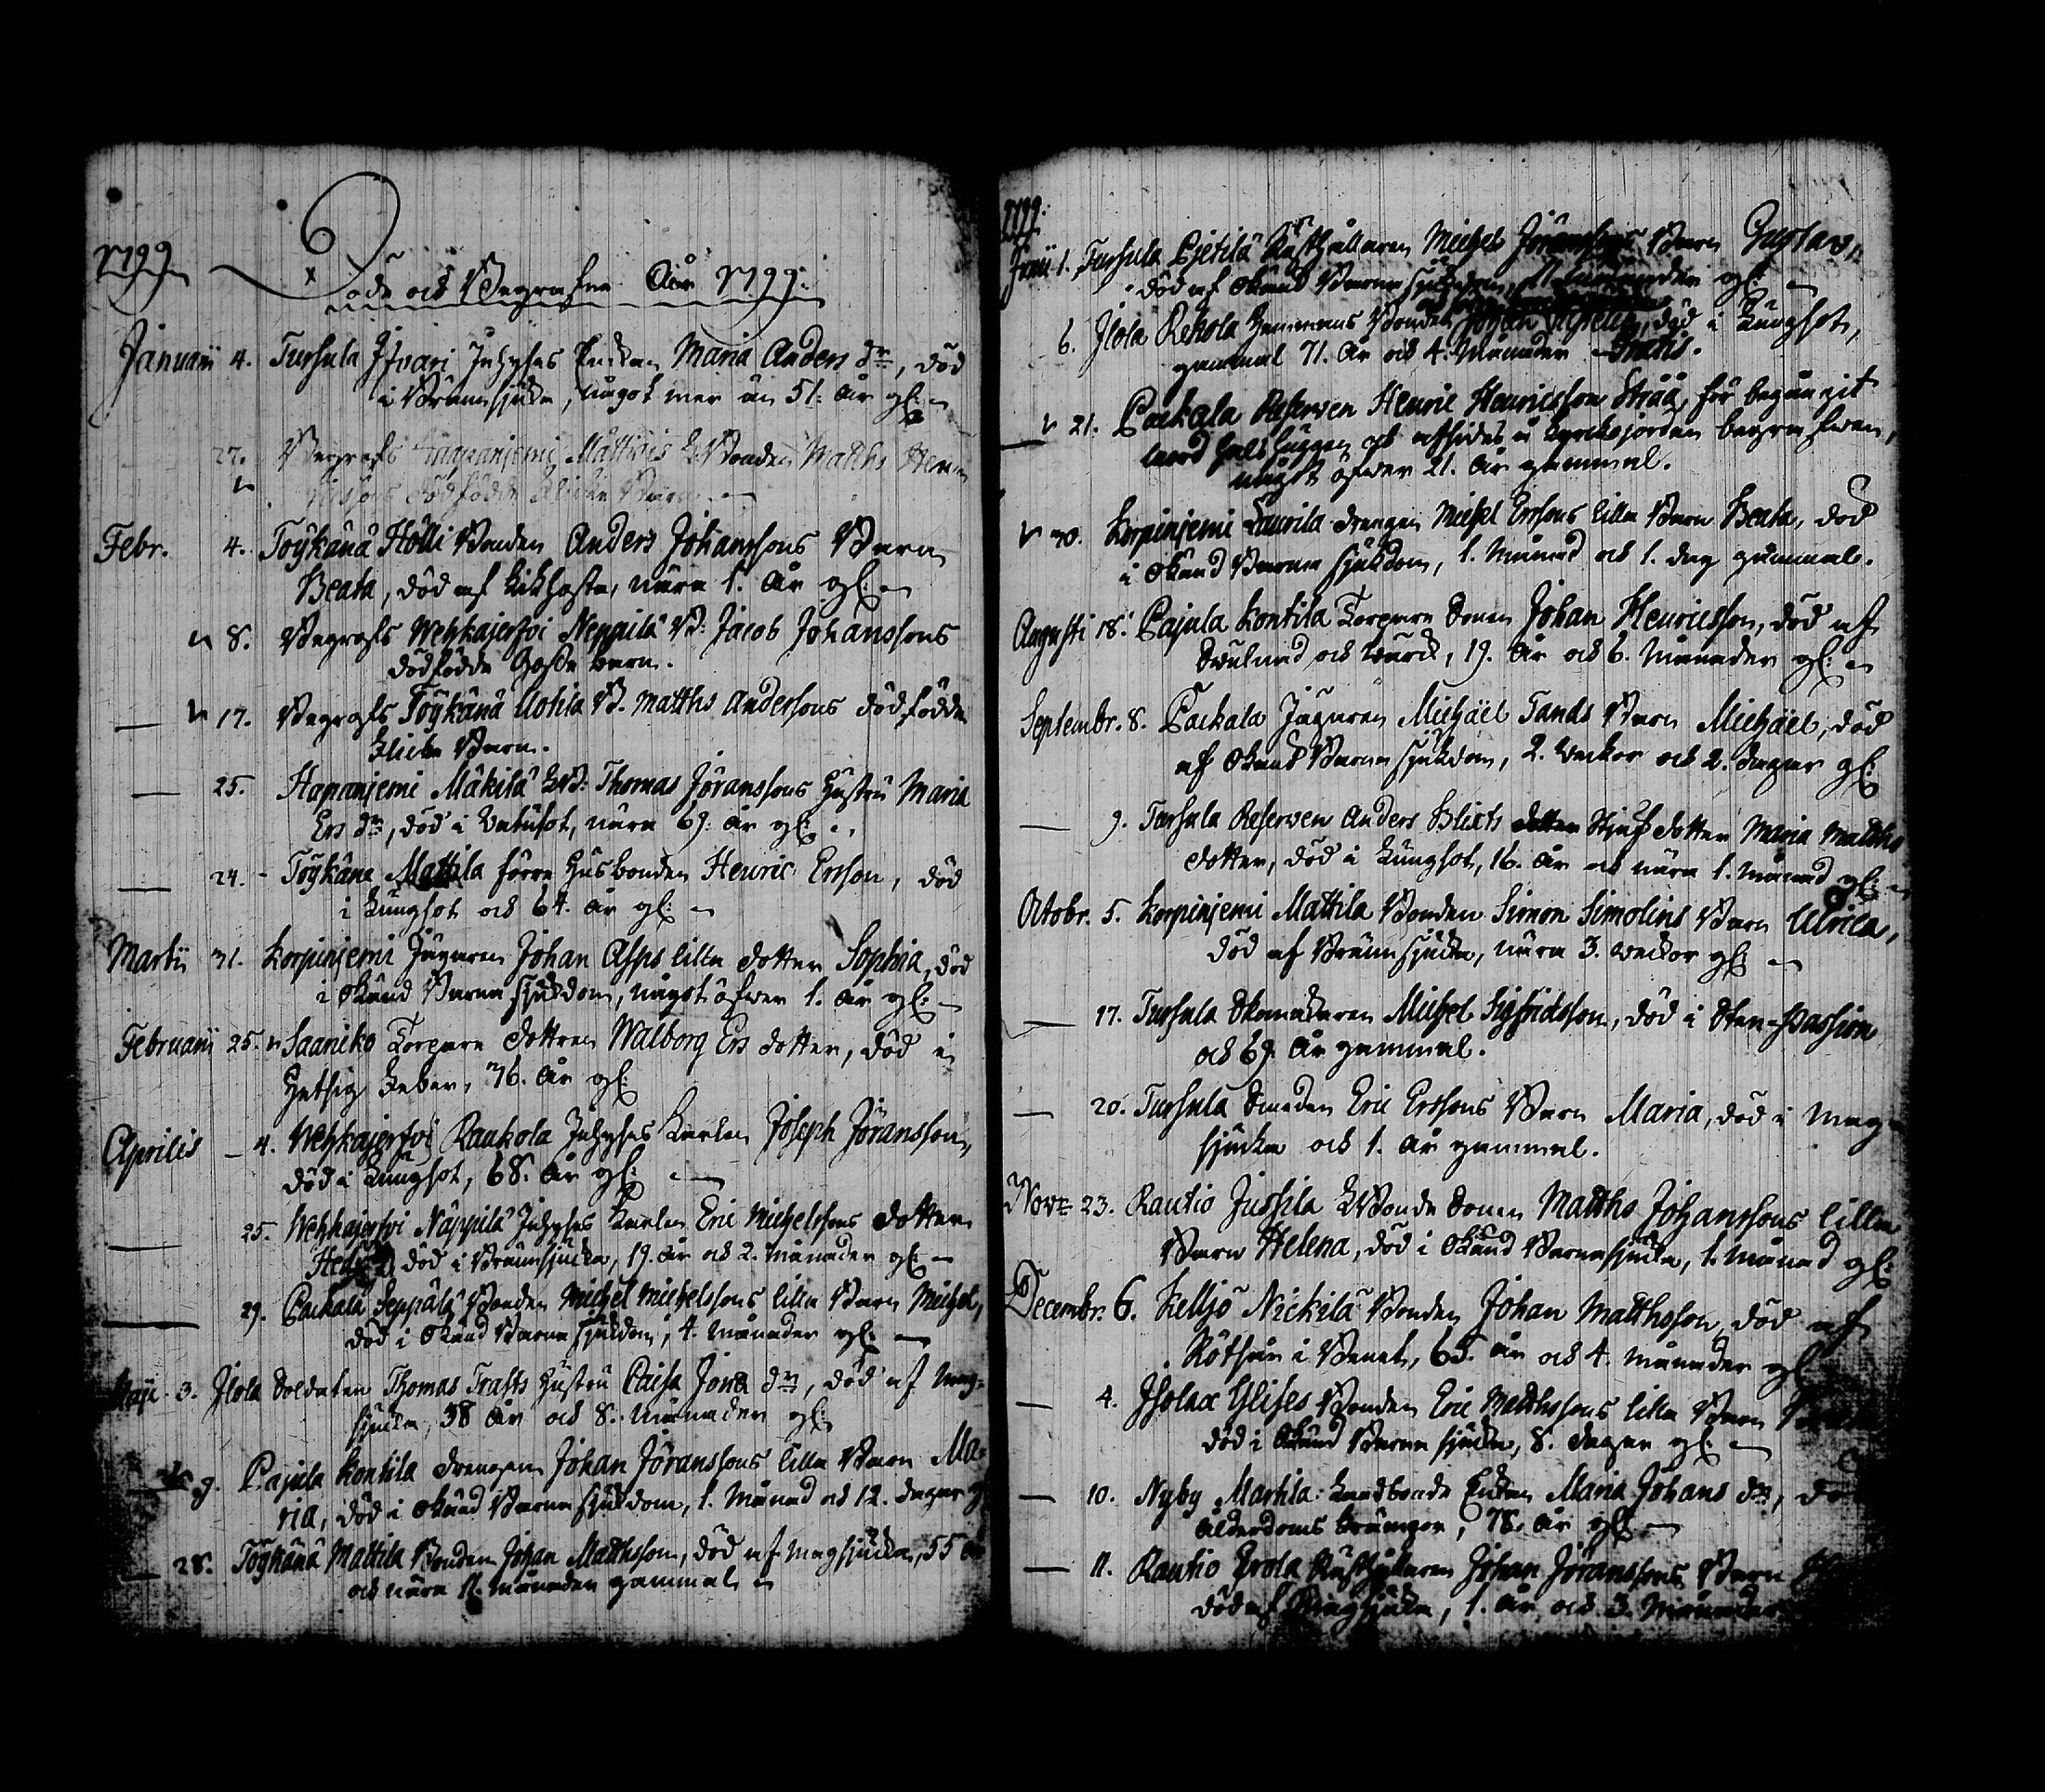 1799
Döde och Begrafne År 1799:
Januarii 4. Tursula Ifvari Inhyses Enckan Maria Anders dr, död
i Brännsjuka, något mer än 51. år gl:
27. Begrofs Hapaniemi Mattais LBonden Matths Hen-
ricssons dödfödde flicke Barn.
Febr. 4. Töykänä Hölli Bonden Anders Johanssons Barn
Beata, död af kikhosta, nära 1. år gl:
8. Begrofs Wehkajerfvi Neppilä B: Jacob Johanssons
dödfödde Gosse barn.
17. Begrofs Töykänä Uotila B. Matths Anderssons dödfödde
flicke Barn.
25. Hapanjemi Mäkilä LB: Thomas Jöranssons Hustru Maria
Ers dr, död i Watusot, nära 69. år gl:
24. Töykänä Mattila förre Husbonden Henric Ersson, död
i Lungsot och 64. år gl:
Martii 31. Korpinjemi Jägaren Johan Asps lilla dotter Sophia, död
i okänd Barna sjukdom, något öfwer 1. år gl:
Februarii 25. Saaneko Torpare dottren Walborg Ers dotter, död i
Hetsig feber, 76. år gl:
Aprilis 4. Wehkajerfvi Raukola Inhyses Karlen Joseph Jöransson,
död i Lungsot, 68. år gl:
25. Wehkajerfvi Näppilä Inhyses Karlen Eric Michelssons dotter
död i Brännsjuka, 19. år och 2. månader gl:
29. Packala Seppälä Bonden Michel Michelssons lilla Barn Michel,
död i okänd Barna sjukdom, 4. månader gl:
Maji 3. Ilola Soldaten Thomas Trasts Hustru Caisa Jons dr, död af mag-
sjucka, 38 år och 8. månader gl:
9. Pajula Kontila drengen Johan Jöranssons lilla Barn Ma-
ria, död i okänd Barna sjukdom, 1. månad och 12. dagar
28. Töykänä Mattila Bonden Johan Matthsson, död af magsjucka, 55 år
och nära 11. månader gammal
1799:
Junii 1. Tursula Pietilä Rusthållaren Michel Jöranssons Barn Gustav,
död af okänd Barna sjukdom, 11 månader gl:
6. Ilola Rekola Hemmans Bonden Johan död i Lungsot,
gammal 71. år och 4. månader
21. Packala Reserven Henric Henricsson Stråå, för begångit
mord halshuggen och afsides å kyrkojorden begrafwen,
något öfwer 21. år gammal.
30. Korpinjemi Laurila drengen Michel Erssons lilla Barn Beata, död
i okänd Barna sjukdom, 1. månad och 1. dag gammal.
Augusti 18. Pajula Kontila Torpare Sonen Johan Henricsson, död af
Swulnad och Wärck, 19. år och 6. månader gl:
Septembr. 8. Packala Jägaren Michäel Sands Barn Michäel, död
af okänd Barna sjukdom, 2. weckor och 2. dagar gl:
9. Tursula Reserven Anders Blixts Stjuf dotter Maria Matths
dotter, död i Lungsot, 16. år och nära 1. månad gl:
Octobr. 5. Korpinjemi Mattila Bonden Simon Simolins Barn Ulrica,
död af Brännsjucka, nära 3. weckor gl:
17. Tursula Skomakaren Michel Sigfridsson, död i Sten-Passion
och 69. år gammal.
20. Tursula Smeden Eric Erssons Barn Maria, död i mag-
sjucka och 1. år gammal.
Novr 23. Rautio Jussila LBonde Sonen Matths Johanssons lilla
Barn Helena, död i okänd Barnasjucka, 1. månad gl:
Decembr. 6. Kelljo Nickilä Bonden Johan Matthsson, död af
Rötsår i Benet, 65. år och 4. månader gl:
4. Isolax Ylises Bonden Eric Matthssons lilla Barn
död i okänd Barna sjucka, 8. dagar gl:
10. Nyby Martila Landbonde Enkan Maria Johans dr,
ålderdoms krämpor, 78. år gl:
11. Rautio Erola Rusthållaren Johan Jöranssons Barn
död af magsjucka, 1. år och 3. månader